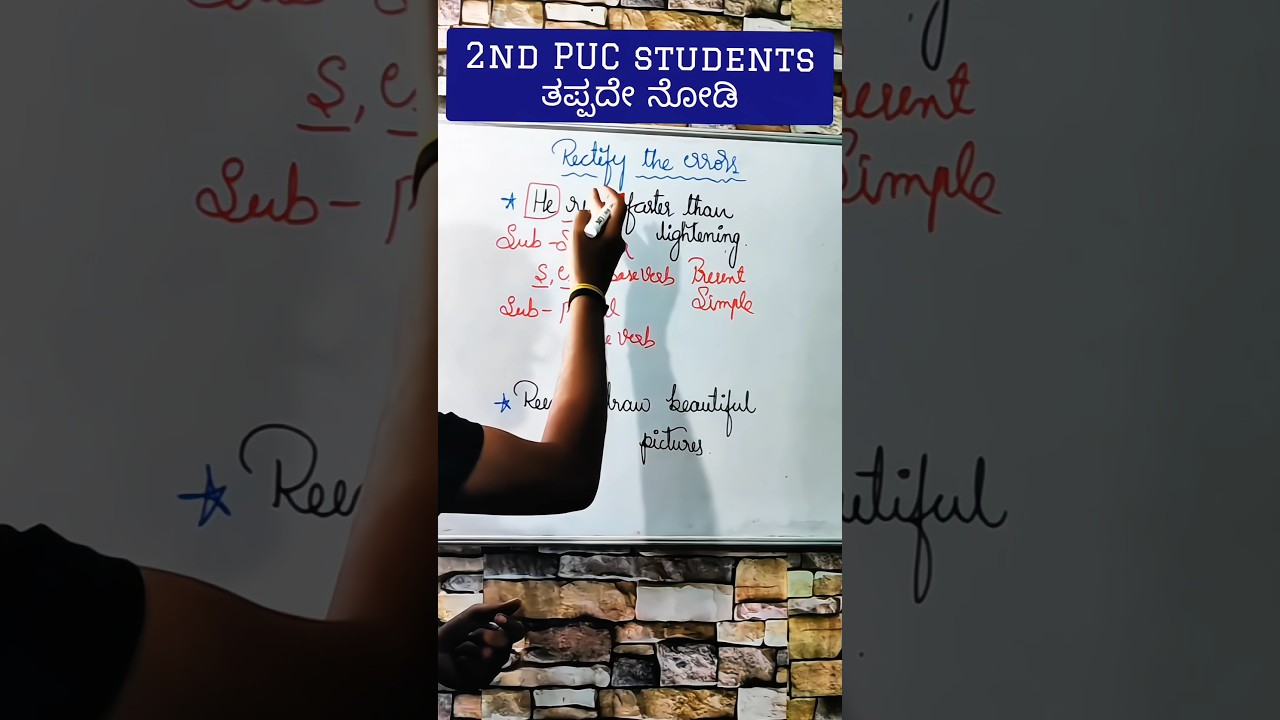 2ND PUC STUDENTS
ತಪ್ಪದೇ ನೋಡಿ
Rectify the errors
He faster than
lightening.
Sub -
S, Base verb Present
Sub - Simple
verb
draw beautiful
pictures.